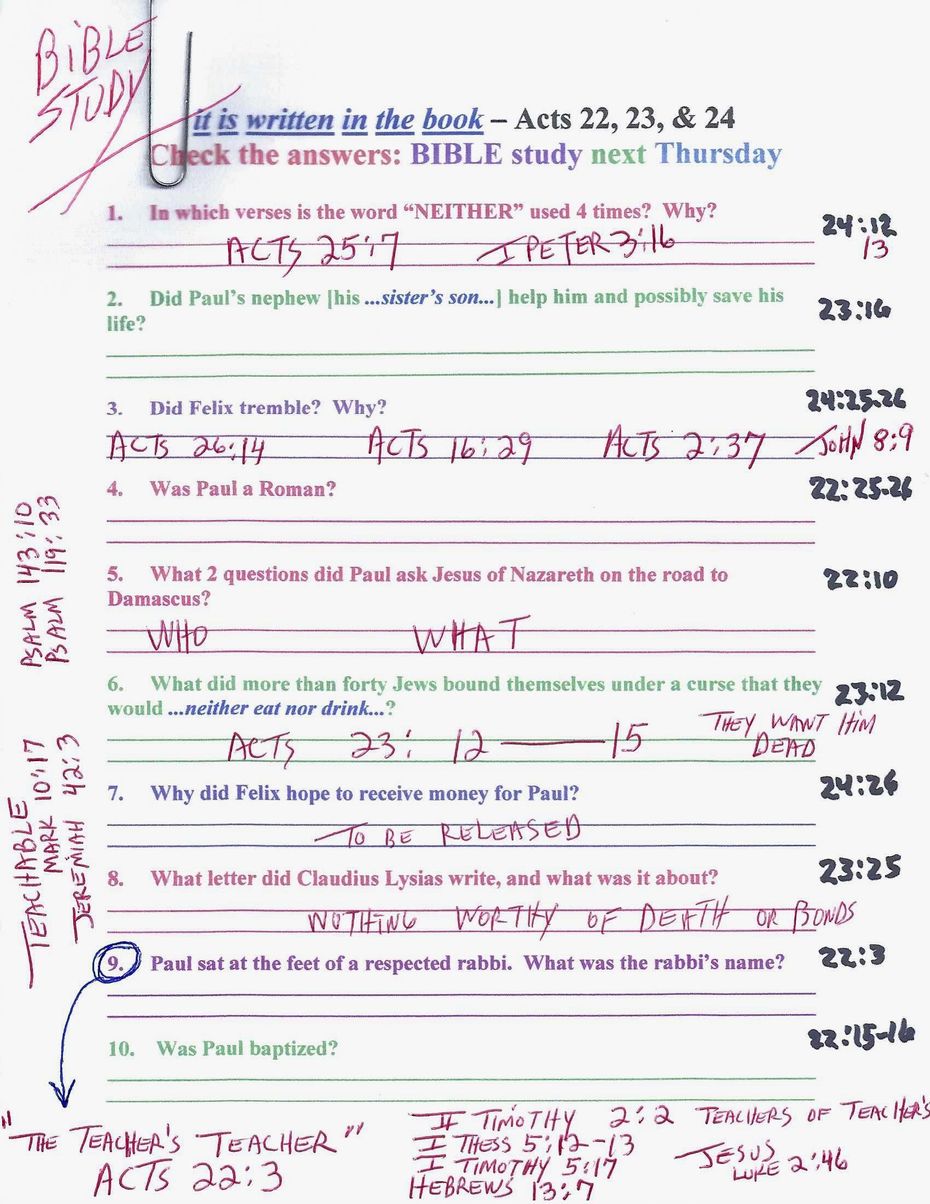 BiBLE
STUDY
it is written in the book – Acts 22, 23, & 24
Check the answers: BIBLE study next Thursday
1. In which verses is the word “NEITHER” used 4 times? Why?
24:12
13
ACTS 25:7 I PETER 3:16
2. Did Paul’s nephew [his ...sister’s son...] help him and possibly save his
life?
23:16
3. Did Felix tremble? Why?
24:25-26
ACTS 26:14 ACTS 16:29 ACTS 2:37 JOHN 8:9
4. Was Paul a Roman?
22:25-26
PSALM 143:10
PSALM 119:33
5. What 2 questions did Paul ask Jesus of Nazareth on the road to
Damascus?
22:10
WHO WHAT
6. What did more than forty Jews bound themselves under a curse that they
would ...neither eat nor drink...?
23:12
ACTS 23: 12 — 15
THEY WANT HIM
DEAD
7. Why did Felix hope to receive money for Paul?
24:26
TO BE RELEASED
TEACHABLE
MARK 10:17
JEREMIAH 42:3
8. What letter did Claudius Lysias write, and what was it about?
23:25
NOTHING WORTHY OF DEATH OR BONDS
9. Paul sat at the feet of a respected rabbi. What was the rabbi’s name?
22:3
10. Was Paul baptized?
22:15-16
"THE TEACHER'S TEACHER"
ACTS 22:3
II TIMOTHY 2:2 TEACHERS OF TEACHER'S
I THESS 5:12-13
I TIMOTHY 5:17
HEBREWS 13:7
JESUS
LUKE 2:46